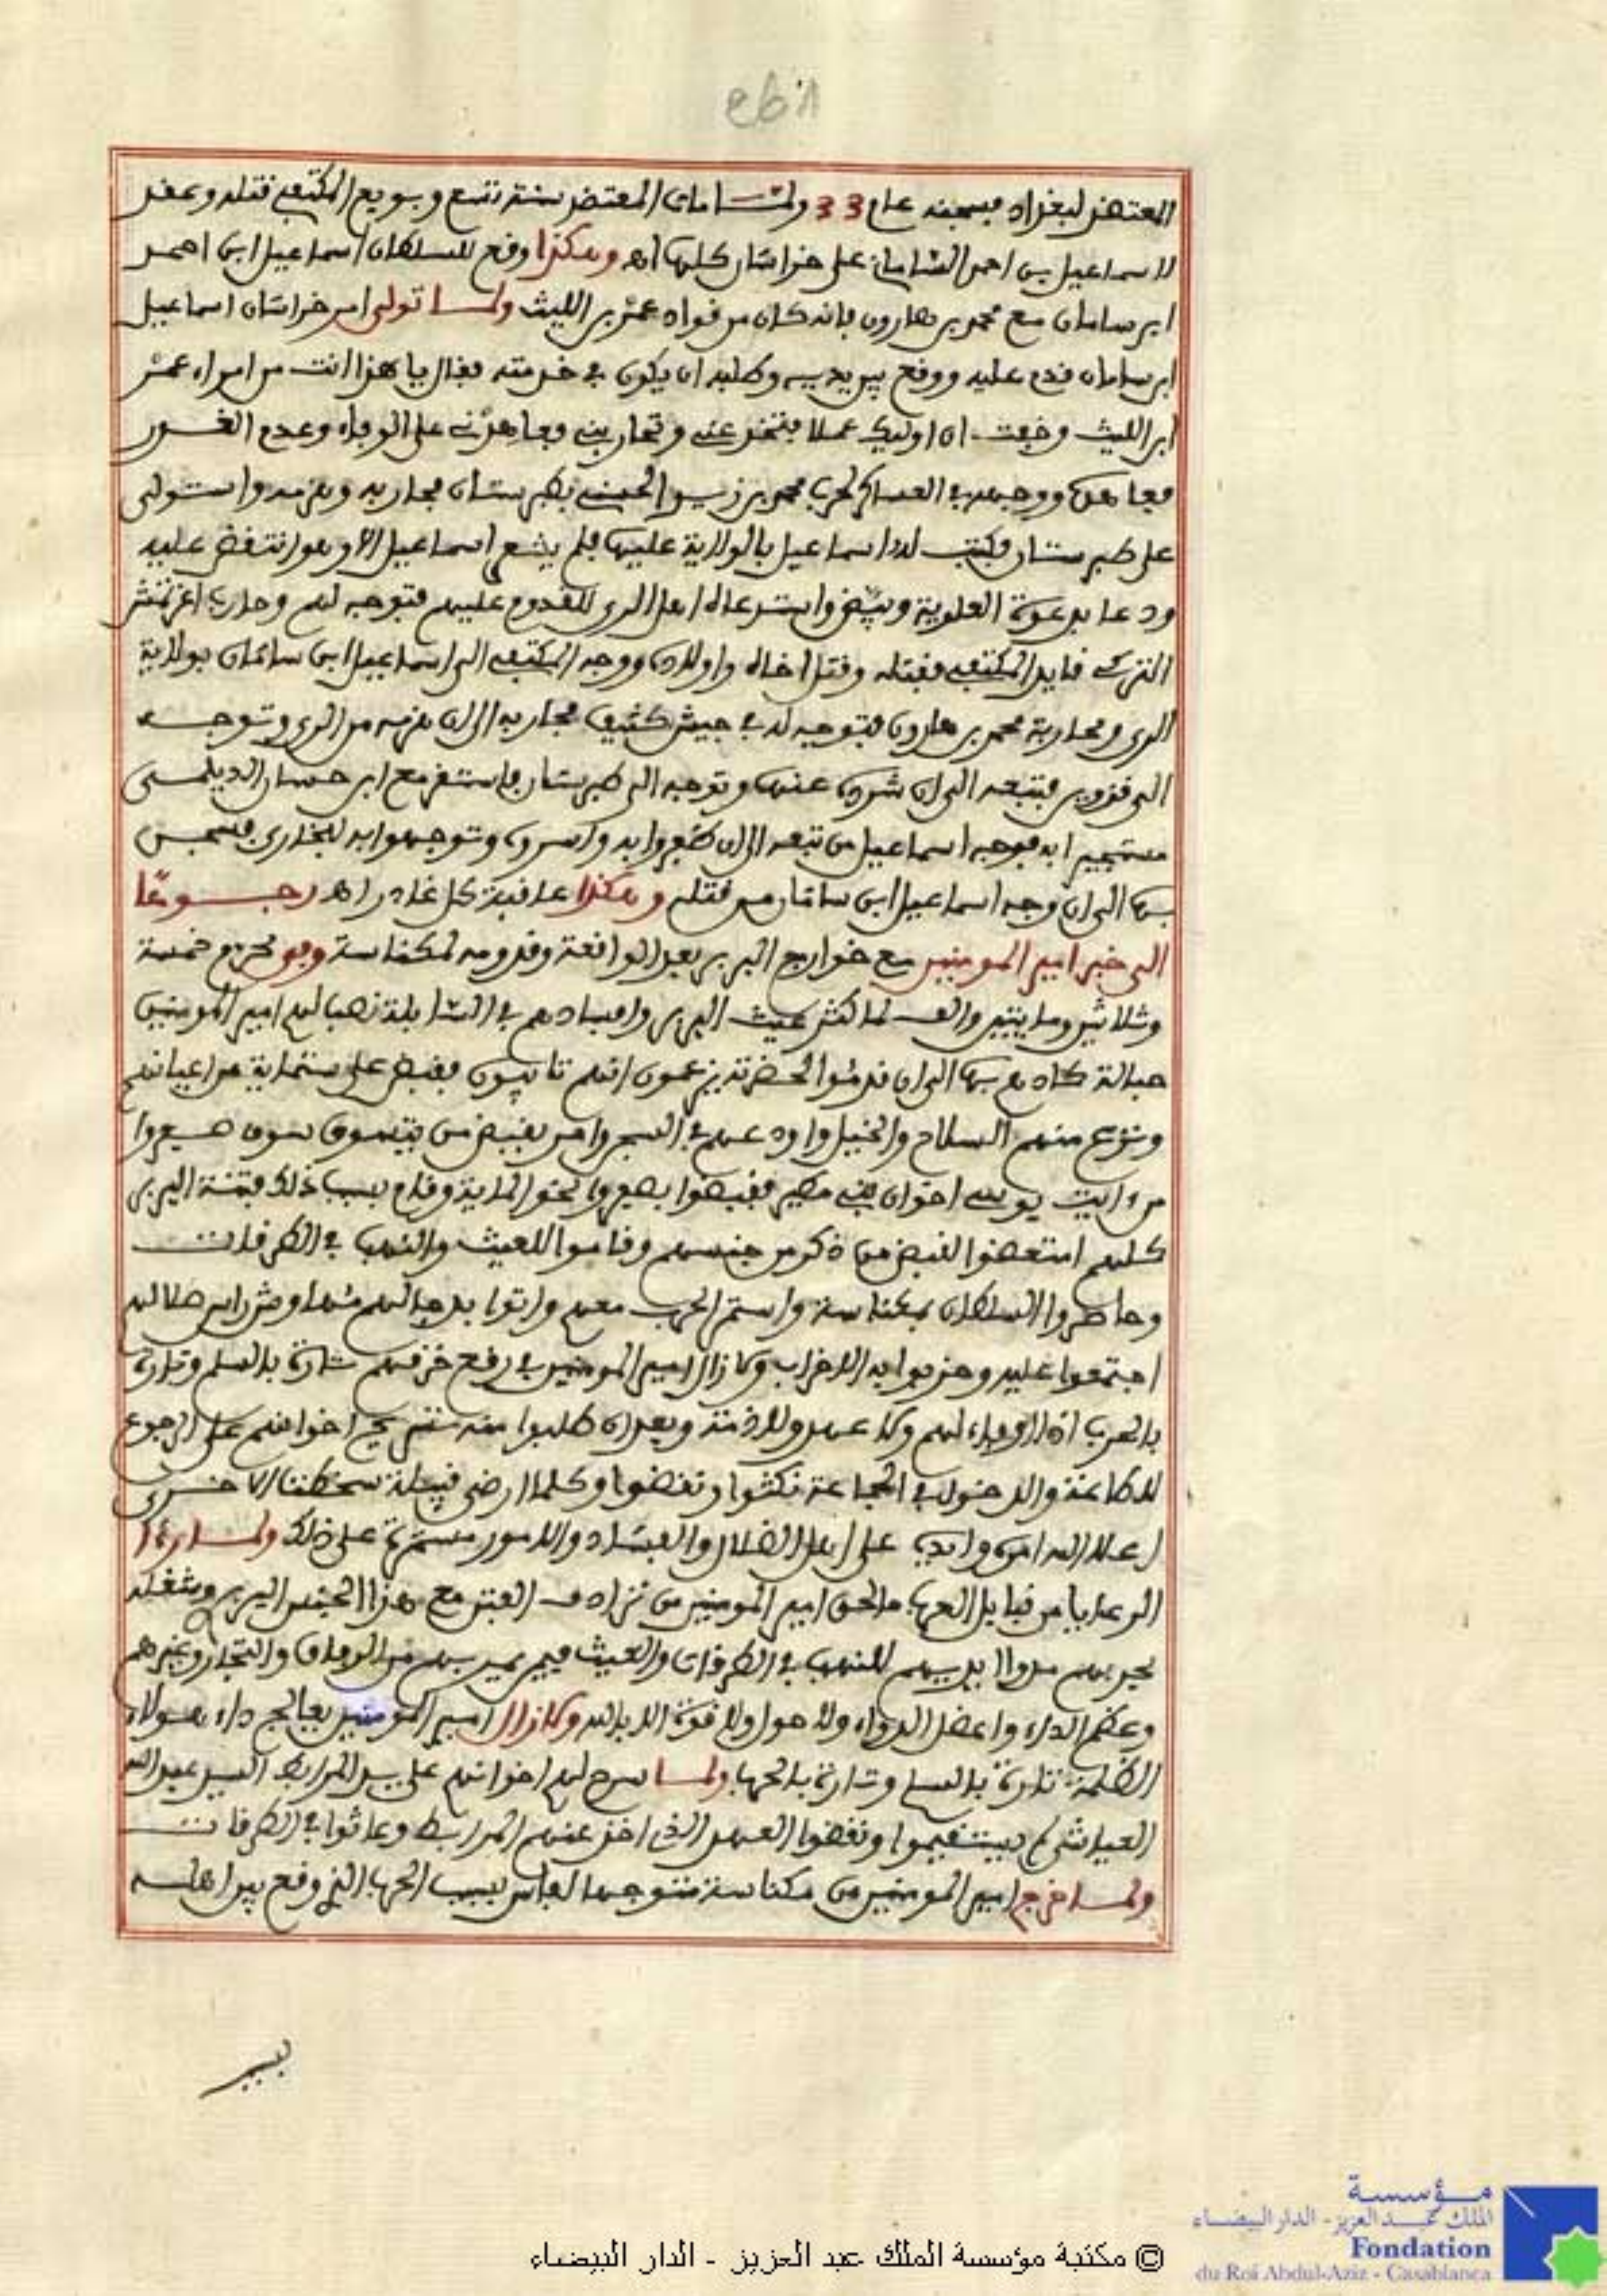 المعتضد لبغداد فسجنه عام 33 ولما مات المعتضد سنة تسع وبويع المكتفي قتله وعقد
لاسماعيل بن احمد الساماني على خراسان كلها اهـ وهكذا وقع للسلطان اسماعيل ابن احمد
ابن سامان مع محمد بن هارون فانه كان من قواد عمر بن الليث ولما تولى امر خراسان اسماعيل
ابن سامان قدم عليه ووقع بين يديه وطلبه ان يكون في خدمته فقال يا هذا انت من امراء عمر
ابن الليث وخفت ان اوليك عملا فتغدر عني وتحاربني فعاهدني على الوفاء وعدم الغدر
فعاهده ووجهه في العساكر لحرب محمد بن زيد الحسني بطبرستان فحاربه وهزمه واستولى
على طبرستان فكتب له اسماعيل بالولاية عليها فلم يشعر اسماعيل الا وهو انتقض عليه
ودعا بدعوة العلوية وبيض واستدعاه اهل الري للقدوم عليهم فتوجه لهم وحاربها اغرتمش
التركي قايد المكتفي فقتله وقتل اخاه واولاده ووجه المكتفي الى اسماعيل ابن سامان بولاية
الري ومحاربة محمد بن هارون فتوجه له في جيش كثيف فحاربه الى ان هزمه من الري وتوجه
الى قزوين فتبعه الى ان شرده عنها وتوجه الى طبرستان فاستقر مع ابن حسان الديلمي
مستجيرا به فوجه اسماعيل من تبعه الى ان ظفروا به واسروه وتوجهوا به لبخارى فسجن
بها الى ان وجه اسماعيل ابن سامان من قتله وهكذا عاقبة كل غادر اهـ رجوعا
الى خبر امير المومنين مع خوارج البربر بعد الواقعة وقدومه لمكناسة وفي محرم خمسة
وثلاثين ومايتين والف لما كثر عيث البربر وافسادهم في السابلة نصب لهم امير المومنين
حبالة كادهم بها الى ان قدموا لحضرته يزعمون انهم تايبون فقبض على ستماية من اعيانهم
ونزع منهم السلاح والخيل واودعهم في السجن وامر بقبض من يتسوق بسوق صفروا
من ايت يوسي اخوان بني مطير فقبضوا بصفروا نحو الماية وقام بسبب ذلك فتنة البربر
كلهم امتعضوا لقبض من ذكر من جنسهم وقاموا للعيث والنهب في الطرقات
وحاصروا السلطان بمكناسة واستمر الحرب معهم واتوا بدجالهم مهاوش راس ضلالهم
اجتمعوا عليه وحزبوا به الاحزاب وما زال امير المومنين في رقع خرقهم تارة بالسلم وتارة
بالحرب اذ لا وفاء لهم ولا عهد ولا ذمة وبعد ان طلبوا منه تسريح اخوانهم على الرجوع
للطاعة والدخول في الجماعة نكثوا ونقضوا وكلما ارضى قبيلة سخطت الاخرى
اعلا الله امره وايده على اهل الضلال والفساد والامور مستمرة على ذلك ولما راءا
الرعايا من قبايل العرب ما لحق امير المومنين من ترادف الفتن مع هذا الجنس البربر وشغله
بحربهم مدوا ايديهم للنهب في الطرقات والعيث فيمن يمر بهم من الوفاق والتجار وغيرهم
وعظم الداء واعضل الدواء ولا حول ولا قوة الا بالله وما زال امير المومنين يعالج داء هولاء
الظلمة تارة بالسلم وتارة بالحرب ولما سرح لهم اخوانهم على يد المرابط السيد عبد الله
العياشي لم يستقيموا ونقضوا العهد الذي اخذ عنهم المرابط وعاثوا في الطرقات
ولما خرج امير المومنين من مكناسة متوجها لفاس بسبب الحرب الذي وقع بين اهله
بسبب
© مكتبة مؤسسة الملك عبد العزيز - الدار البيضاء
مؤسسة
الملك عبد العزيز - الدار البيضاء
Fondation
du Roi Abdul-Aziz - Casablanca